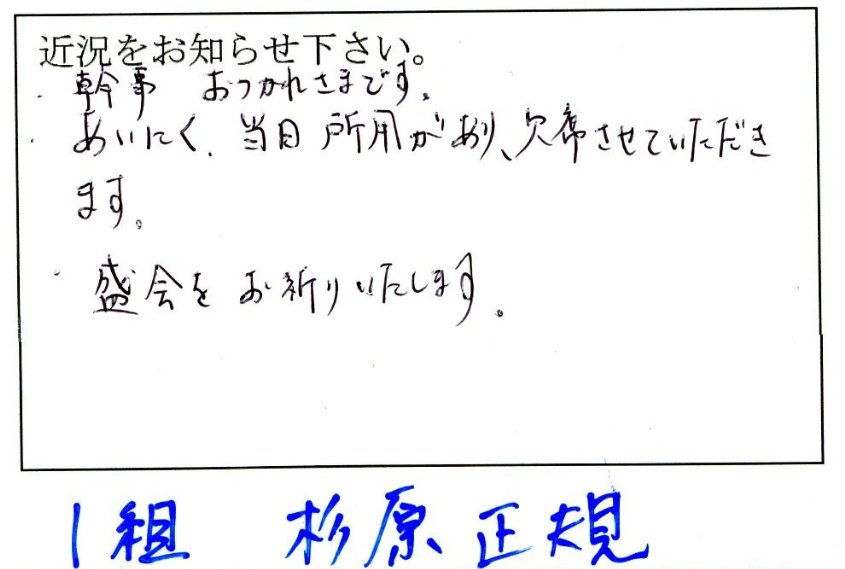 近況をお知らせ下さい。
・幹事 おつかれさまです。
・あいにく、当日所用があり、欠席させていただき
ます。
・盛会をお祈りいたします。
1組 杉原正規